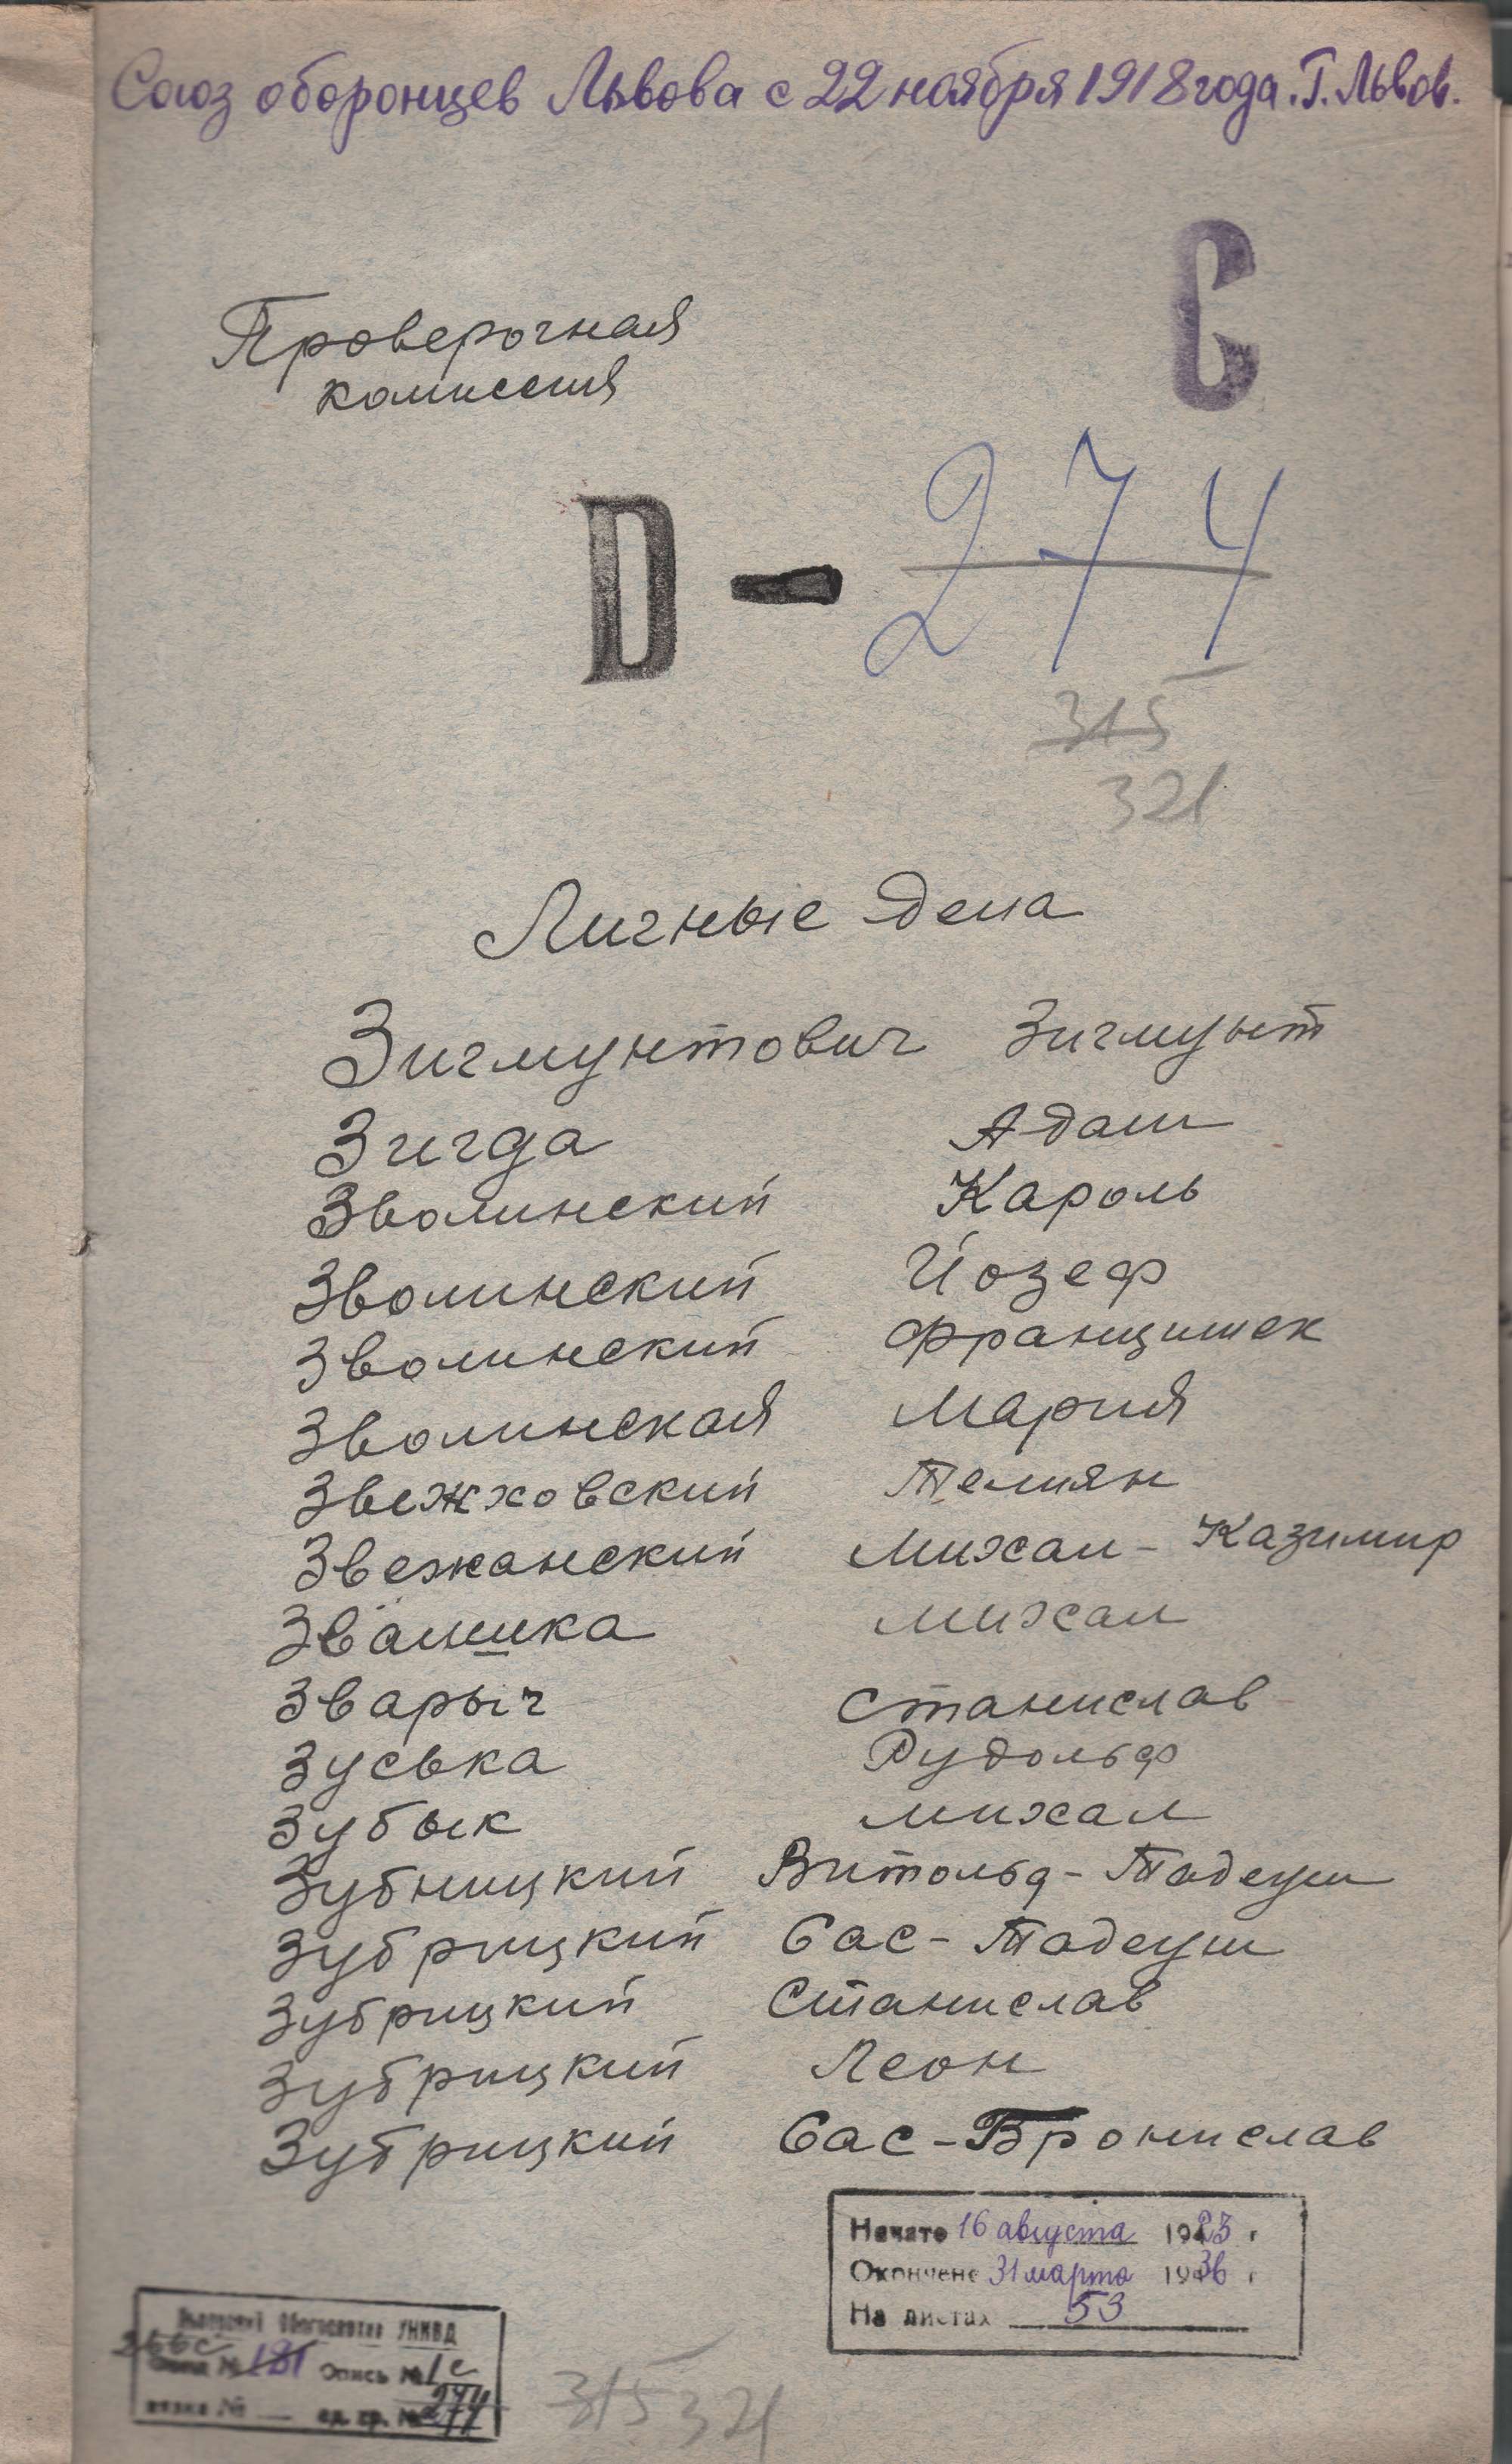 Союз оборонцев Львова с 22 ноября 1918 года. Г. Львов.
С
Проверочная
комиссия
D - 274
315
321
Личные дела
Зигмунтович Зигмунт
Зигда Адам
Зволинский Кароль
Зволинский Йозеф
Зволинский Францишек
Зволинская Мария
Звежховский
Звежанский Михал - Казимир
Михал
Зварыч Станислав
Зуська Рудольф
Зубык Михал
Зубницкий Витольд - Тадеуш
Зубрицкий Сас - Тадеуш
Зубрицкий Станислав
Зубрицкий Леон
Зубрицкий Сас - Бронислав
Начато 16 августа 1923 г
Окончено 31 марта 1936 г
На листах 53
УНКВД
266с
Фонд № 181 Опись № 1с
вязка № ед. хр. № 274
315 321